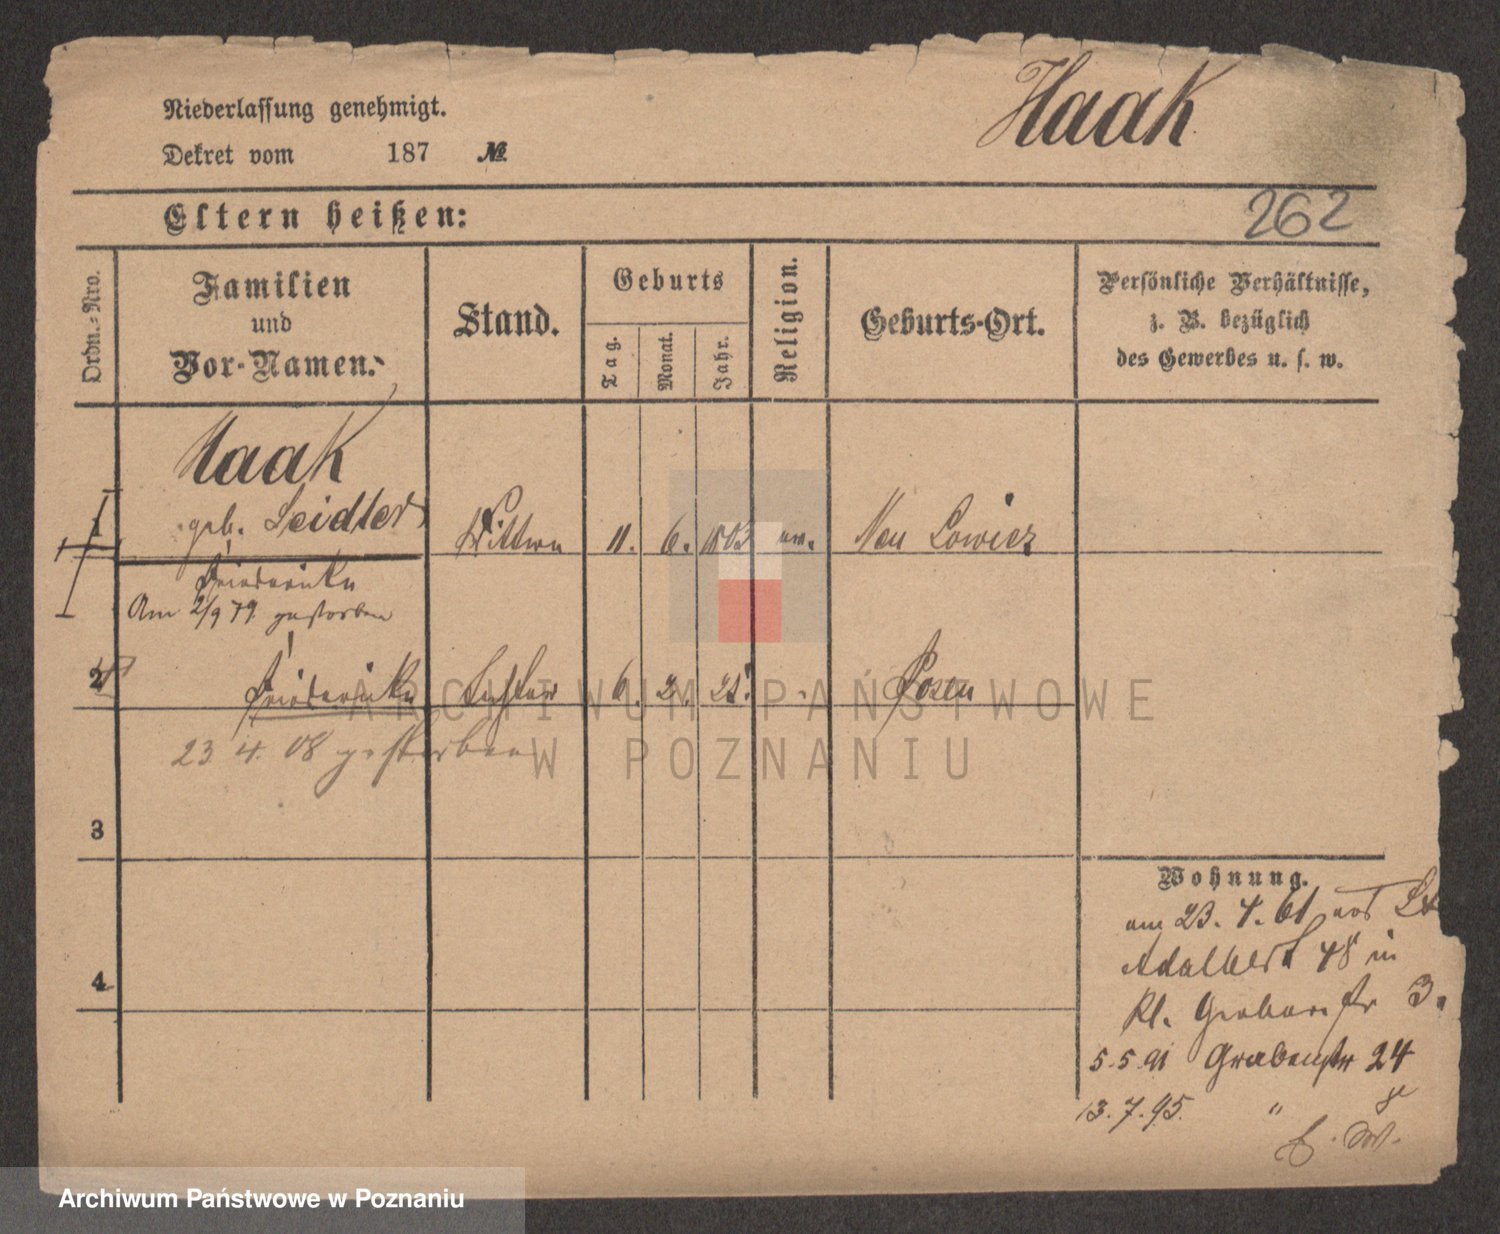 Niederlassung genehmigt.
Dekret vom 187 №
Haak
262
Eltern heißen:
Ordn.-Nro.
Familien
und
Vor-Namen.
Stand.
Geburts
Tag.
Monat.
Jahr.
Religion.
Geburts-Ort.
Persönliche Verhältnisse,
z. B. bezüglich
des Gewerbes u. s. w.
Haak
geb. Seidler
1 Wittwe 11. 6. 1803 ev. Neu Lowicz
Friederike
Am 2/9 79. gestorben
2 Friederike Tochter 6. 2. Posen
23 4. 08 gestorben
3
4
Wohnung.
am 23. 4. 61 St
Adalbert 48 in
Kl. Gerberstr 3.
5.5.91 Grabenstr 24
13.7.95. "
ARCHIWUM PAŃSTWOWE
W POZNANIU
Archiwum Państwowe w Poznaniu